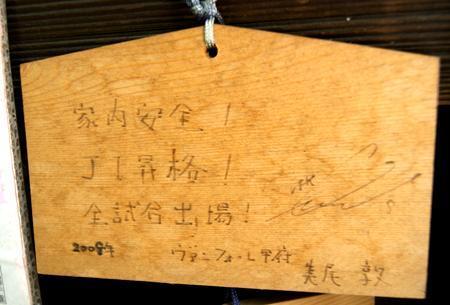 家内安全!
J1昇格!
全試合出場!
2008年 ヴァンフォーレ甲府 美尾 敦